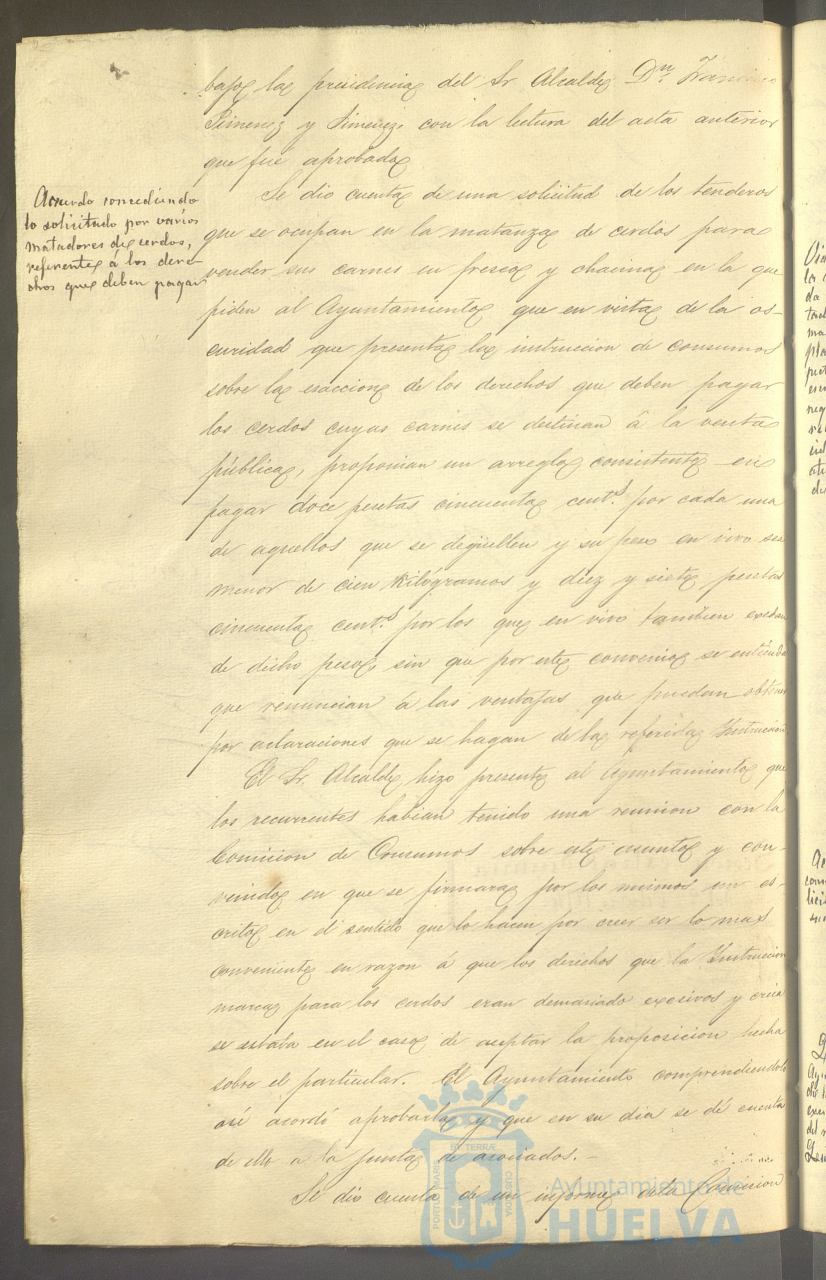 bajo la presidencia del Sr Alcalde Dn. Francisco
Jimenez y Jimenez, con la lectura del acta anterior
que fué aprobada
Acuerdo concediendo
lo solicitado por varios
matadores de cerdos,
referente á los dere-
chos que deben pagar
Se dio cuenta de una solicitud de los tenderos
que se ocupan en la matanza de cerdos para
vender sus carnes en fresco y chacina en la que
piden al Ayuntamiento que en vista de la os-
curidad que presenta la instruccion de consumos
sobre la esaccion de los derechos que deben pagar
los cerdos cuyas carnes se destinan á la venta
pública, proponian un arreglo consistente en
pagar doce pesetas cincuenta cents. por cada uno
de aquellos que se degüellen y su peso en vivo sea
menor de cien kilógramos y diez y siete pesetas
cincuenta cents. por los que en vivo tambien excedan
de dicho peso, sin que por este convenio se entienda
que renuncian á las ventajas que puedan obtener
por aclaraciones que se hagan de la referida Instruccion
El Sr. Alcalde hizo presente al Ayuntamiento que
los recurrentes habian tenido una reunion con la
Comision de Consumos sobre este asunto y con-
venido en que se firmara por los mismos un es-
crito en el sentido que lo hacen por creer ser lo mas
conveniente en razon á que los derechos que la Instruccion
marca para los cerdos eran demasiado excesivos y creia
se estaba en el caso de aceptar la proposicion hecha
sobre el particular. El Ayuntamiento comprendiendolo
así acordó aprobarla y que en su dia se dé cuenta
de ello a la junta de asociados.-
Se dio cuenta de un informe de la Comision
PORTUS MARIS
ET TERRAE
CUSTODIA
Ayuntamiento de
HUELVA